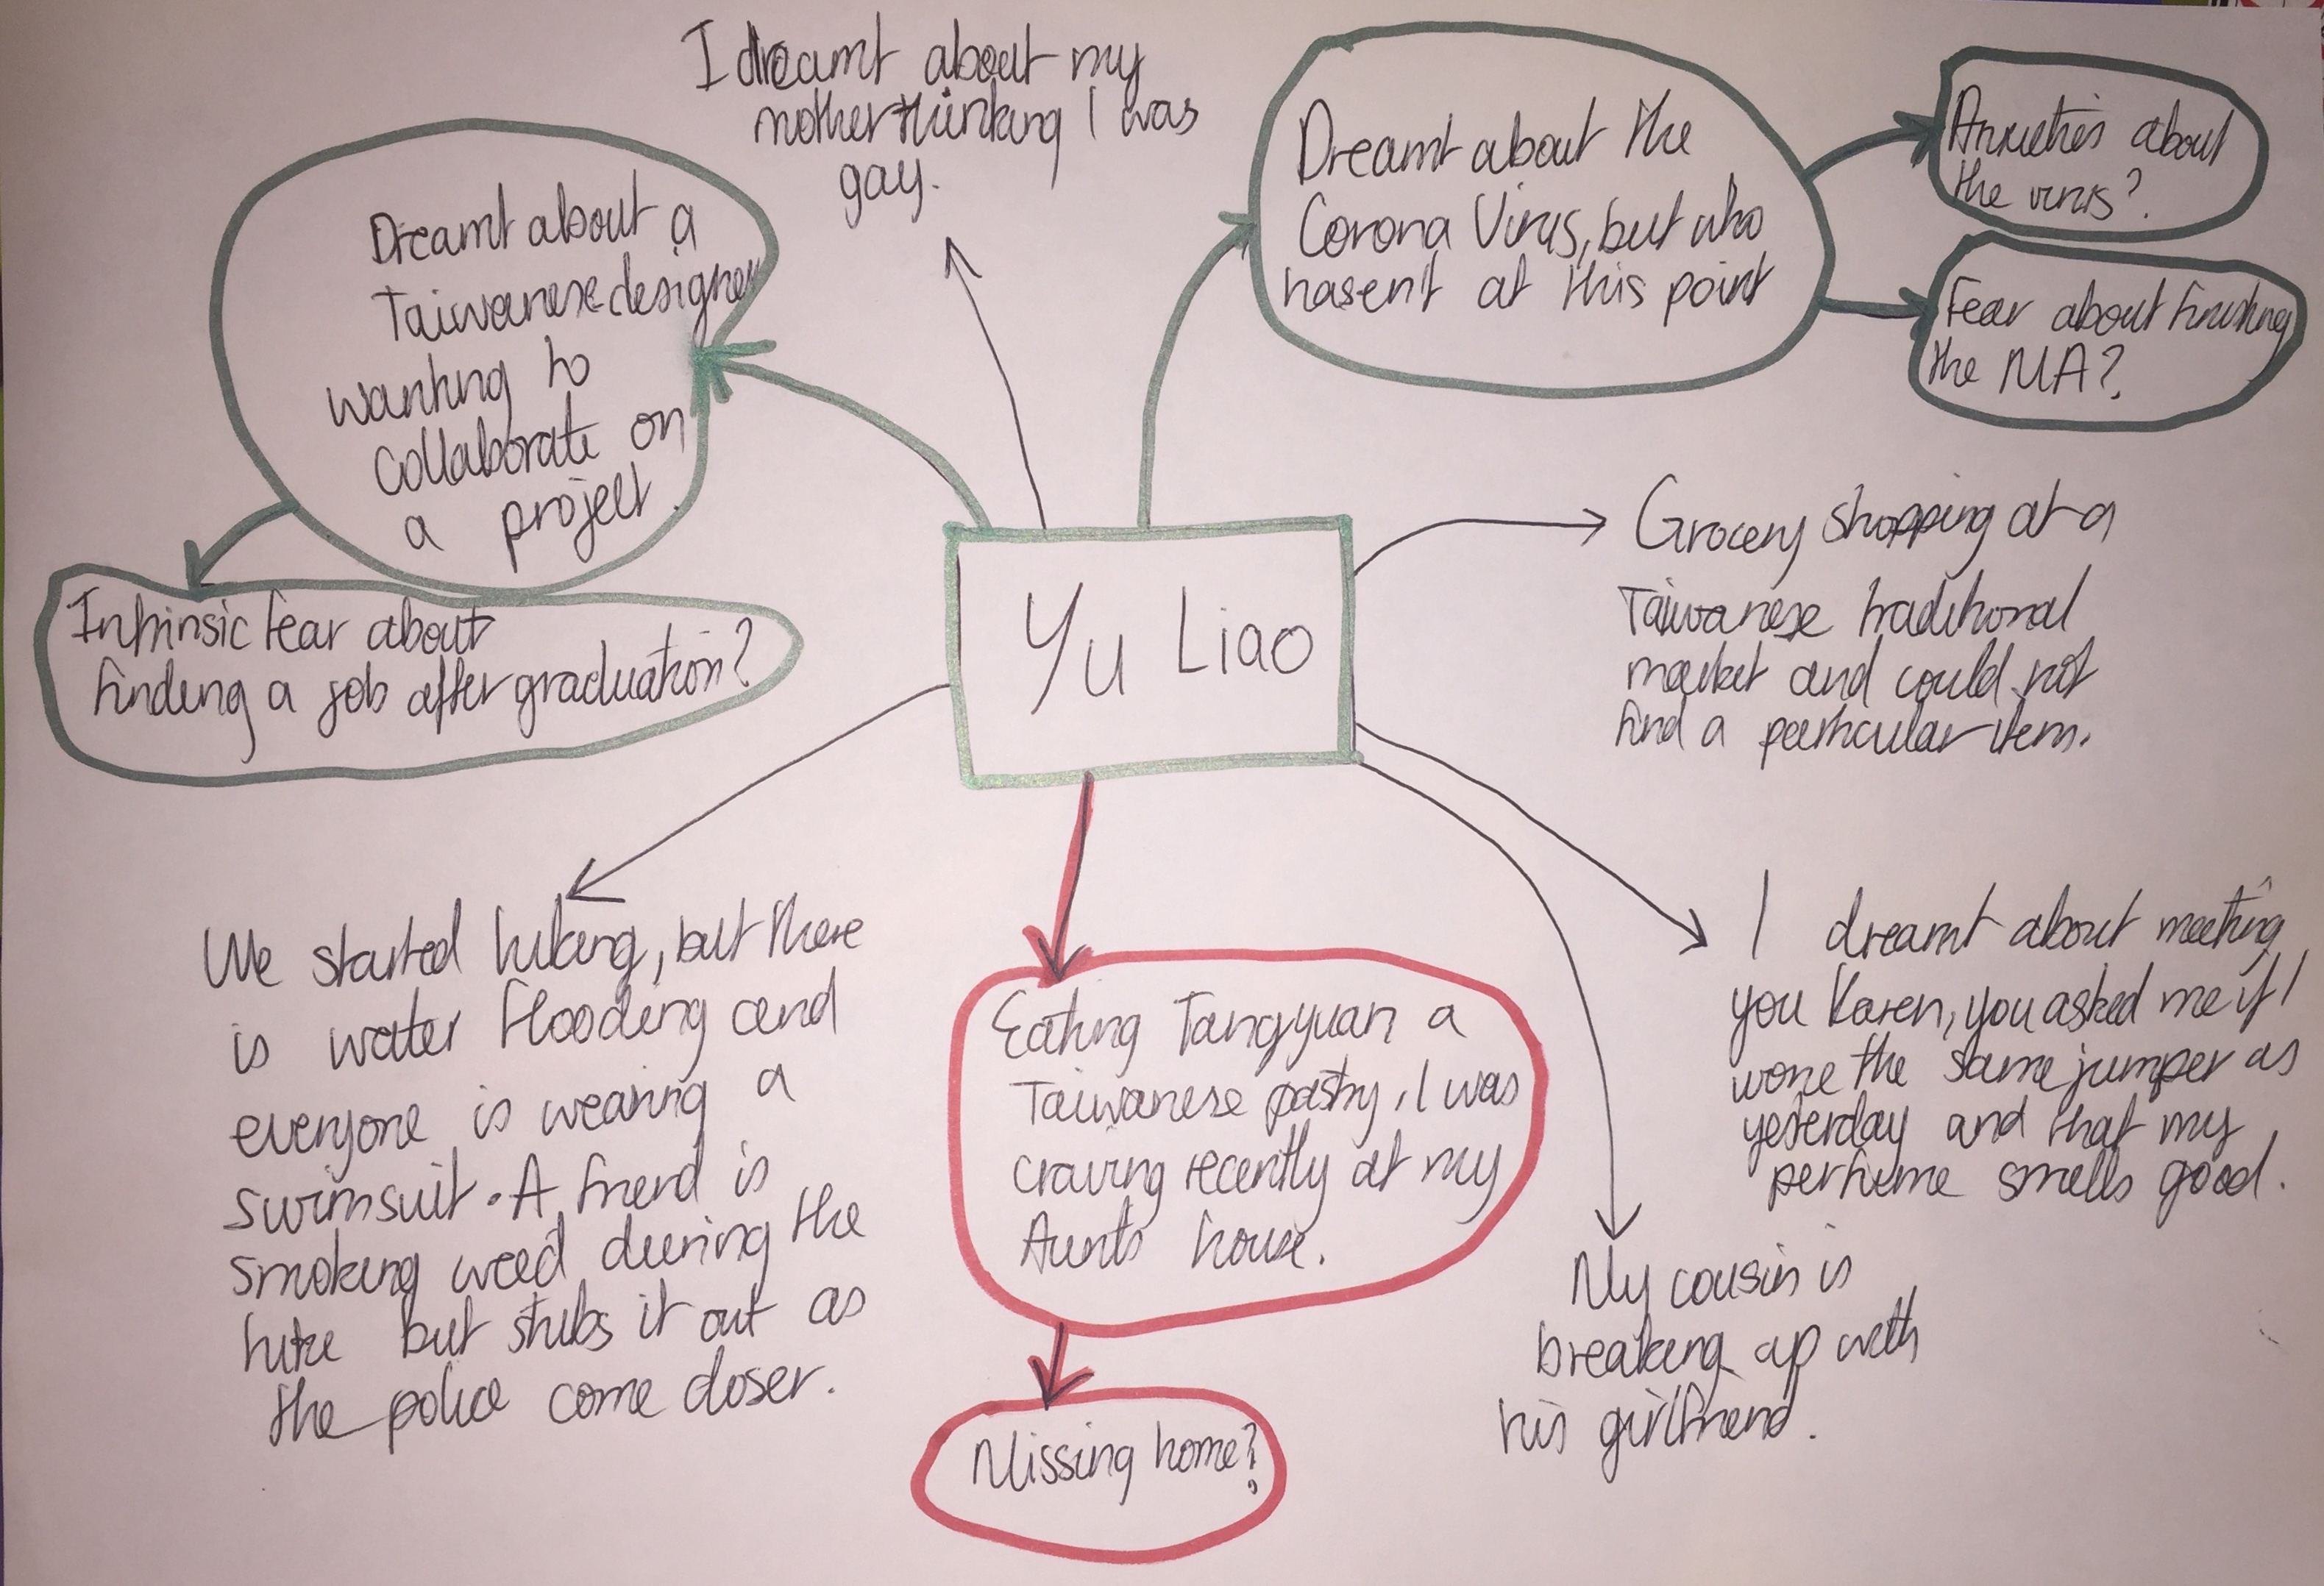 I dreamt about my
mother thinking I was
gay.
Dreamt about the
Corona Virus, but who
hasent at this point
Anxieties about
the virus?
Fear about finishing
the MA?
Dreamt about a
Taiwanese designer
wanting to
collaborate on
a project.
Intrinsic fear about
finding a job after graduation?
Yu Liao
Grocery shopping at a
Taiwanese traditional
market and could not
find a particular item.
We started hiking, but there
is water flooding and
everyone is wearing a
swimsuit. A friend is
smoking weed during the
hike but stubs it out as
the police come closer.
Eating Tangyuan a
Taiwanese pastry, I was
craving recently at my
Aunts house.
Missing home?
I dreamt about meeting
you Karen, you asked me if I
wore the same jumper as
yesterday and that my
perfume smells good.
My cousin is
breaking up with
his girlfriend.